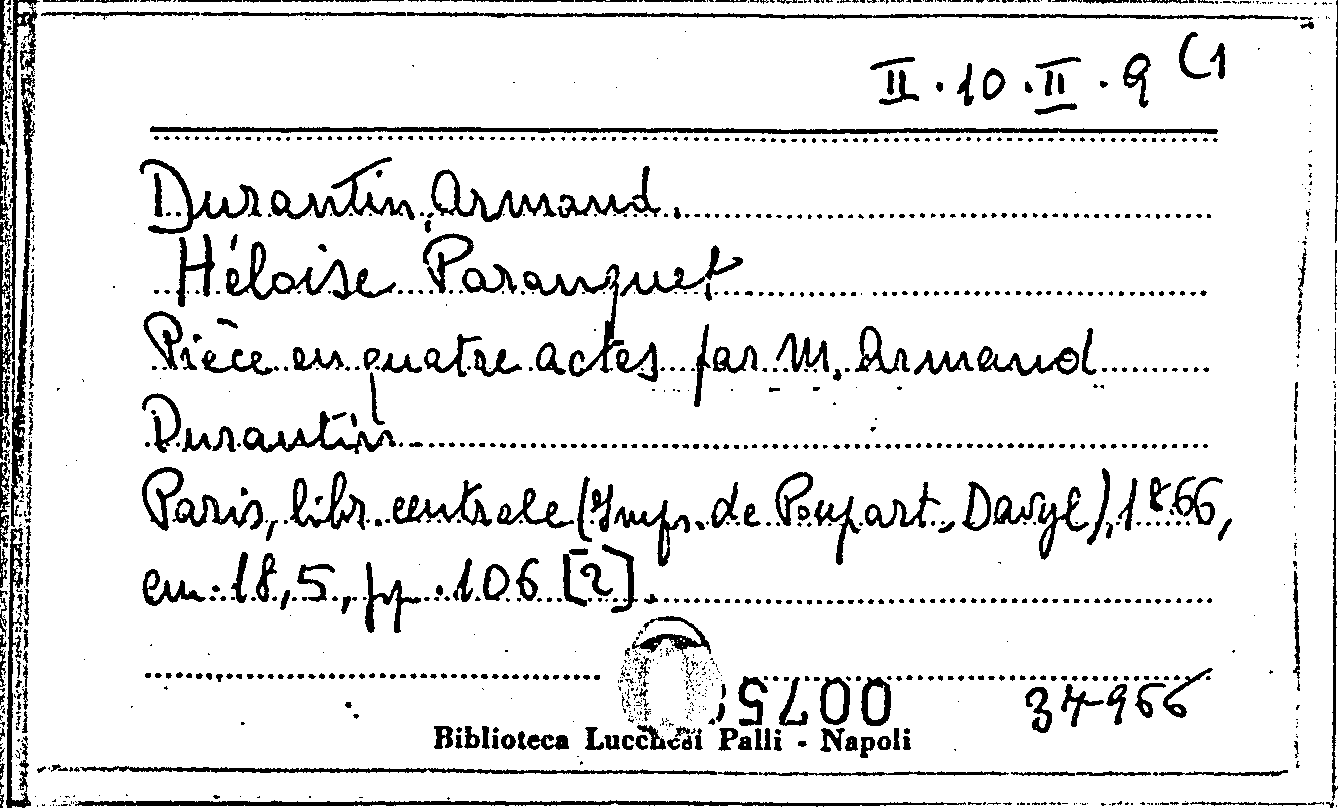 II.10.II.9 (1
Durantin, Armand.
Héloise Paranquet
Pièce en quatre actes par M. Armand
Durantin
Paris, libr. centrale (Imp. de Poupart-Davyl), 1866,
cm. 18,5, pp. 106 [2].
34966
Biblioteca Lucchesi Palli - Napoli